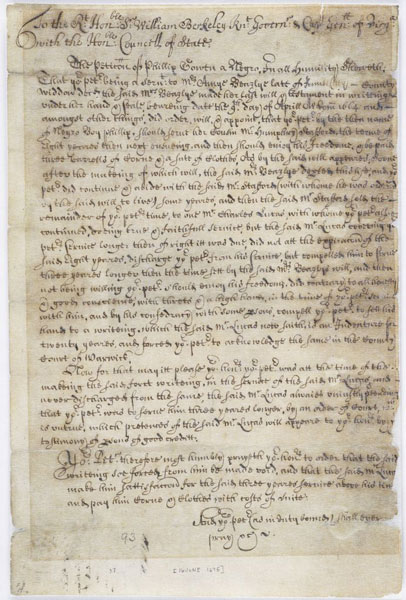 To the Rt Honble Sr William Berkeley Knt Governr & Capt Genll of Virga
with the Honble Councell of State
The Peticon of Phillip Gowen a Negro, in all humility sheweth
That yor petr being a servt to Mrs Amye Beazlye late of James Citty County
Widdow decd the said Mrs Beazlye made her last will & testament in writing
under her hand & seale bearing date the day of Aprill An Dom 1664 and
amongst other things, did order, will & appoint, that yor petr by the then name
of Negro Boy Phillip, should serve her Cousin Mr Humphry Stafford the terme of
Eight yeares then next ensuing, and then should enjoy his freedome, & be paid
three Barrells of Corne & a sute of Clothes, as by the said will appeares, soone
after the making of which will, the said Mrs Beazlye departed this life, and yor
petr did continue & abide with the said Mr Stafford (with whome he was ordered
by the said will to live) some yeares, and then the said Mr Stafford sold the
remainder of yor petr time, to one Mr Charles Lucas with whome yor petr also
continued, doeing true & faithfull service; but the said Mr Lucas coveting yor
petrs service longer then of right itt was due, did not att the expiracon of the
said Eight yeares, discharge yor petr from his service, but compelled him to serve
three yeares longer then the time sett by the said Mrs Beazlys will, and then
not being willing yor petr should enjoy his freedome, did contrary to all honesty
& good conscience, with threts & a high hand, in the time of yor petrs service
with him, and by his confederacy with some persons, compell yor petr to sett his
hand to a writeing, which the said Mr Lucas now saith, is an Indenture for
twenty yeares, and forced yor petr to acknowledge the same in the County
Court of Warwick.
Now for that may itt please yor Honrs yor petr was att the time of the
making the said forct writeing, in the service of the said Mr Lucas and
never discharged from the same, the said Mr Lucas alwaies unjustly pretending
that yor petr was to serve him three yeares longer, by an order of Court, wch
is untrue, which pretence of the said Mr Lucas will appeare to yor Honrs by
testimony of persons of good credit.
Yor Petr therefore most humbly prayeth yor Honrs to order that the said
writeing soe forced from him be made void, and that the said Mr Lucas
make him satisfaccon for the said three yeares service above his time
and pay him Corne & Clothes with costs of suite.
And yor petr (as in duty bound) shall ever
pray &c
93